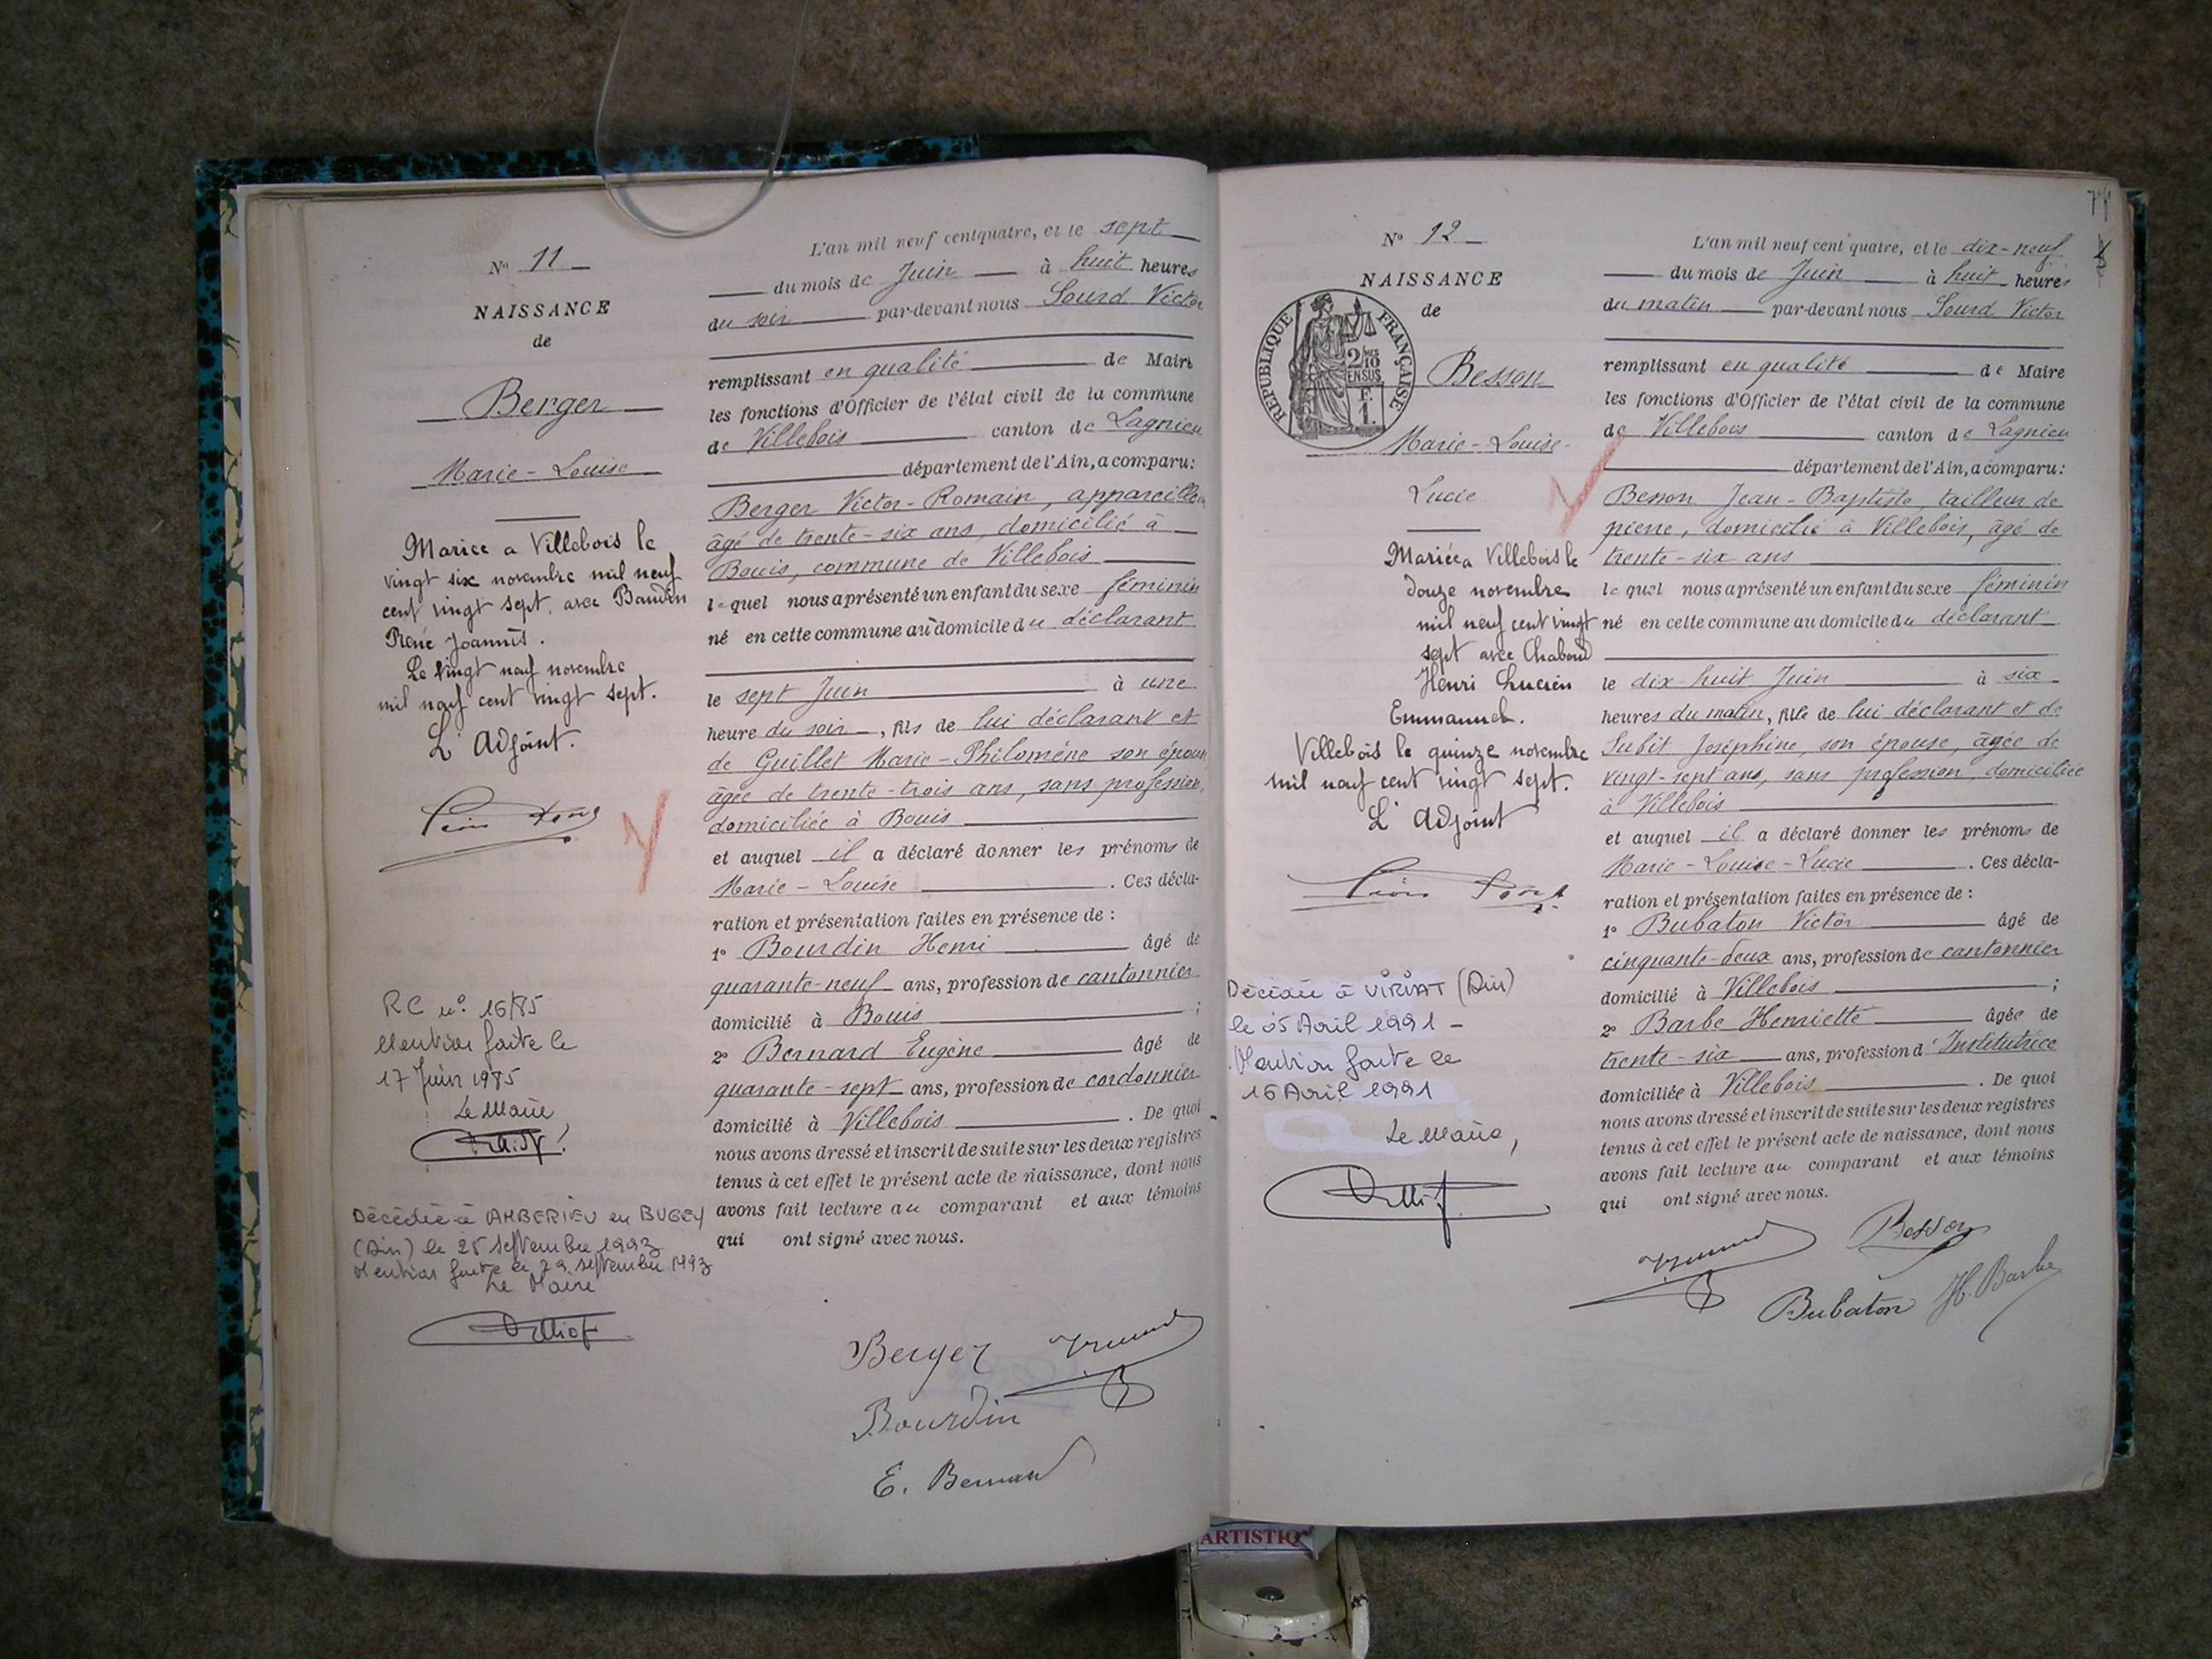 Nº 11
NAISSANCE
de
Berger
Marie-Louise
Mariée a Villebois le
vingt six novembre mil neuf
cent vingt sept, avec Baudin
René Joannès.
Le vingt neuf novembre
mil neuf cent vingt sept.
L'Adjoint.
RC nº 16/85
Mention faite le
17 Juin 1985
Le Maire
Décédée à AMBERIEU en BUGEY
(Ain) le 25 septembre 1993
Mention faite le 29 septembre 1993
Le Maire
L'an mil neuf cent quatre, et le sept
du mois de Juin à huit heures
du soir par-devant nous Sourd Victor
remplissant en qualité de Maire
les fonctions d'Officier de l'état civil de la commune
de Villebois canton de Lagnieu
département de l'Ain, a comparu:
Berger Victor-Romain, appareilleur
âgé de trente-six ans, domicilié à
Bouis, commune de Villebois
lequel nous a présenté un enfant du sexe féminin
né en cette commune au domicile du déclarant
le sept Juin à une
heure du soir, fils de lui déclarant et
de Guillet Marie-Philomène son épouse
âgée de trente-trois ans, sans profession,
domiciliée à Bouis
et auquel il a déclaré donner les prénoms de
Marie-Louise. Ces décla-
ration et présentation faites en présence de :
1º Bourdin Henri âgé de
quarante-neuf ans, profession de cantonnier
domicilié à Bouis ;
2º Bernard Eugène âgé de
quarante-sept ans, profession de cordonnier
domicilié à Villebois. De quoi
nous avons dressé et inscrit de suite sur les deux registres
tenus à cet effet le présent acte de naissance, dont nous
avons fait lecture au comparant et aux témoins
qui ont signé avec nous.
Berger
Bourdin
E. Bernard
Nº 12
NAISSANCE
de
RÉPUBLIQUE FRANÇAISE
2/10
EN SUS
F.
1.
Besson
Marie-Louise-
Lucie
Mariée a Villebois le
douze novembre
mil neuf cent vingt
sept avec Chaboud
Henri Lucien
Emmanuel.
Villebois le quinze novembre
mil neuf cent vingt sept.
L'Adjoint
Décédée à VIRIAT (Ain)
le 05 Avril 1991 -
Mention faite le
16 Avril 1991
Le Maire,
L'an mil neuf cent quatre, et le dix-neuf
du mois de Juin à huit heures
du matin par-devant nous Sourd Victor
remplissant en qualité de Maire
les fonctions d'Officier de l'état civil de la commune
de Villebois canton de Lagnieu
département de l'Ain, a comparu:
Besson Jean-Baptiste, tailleur de
pierre, domicilié à Villebois, âgé de
trente-six ans
lequel nous a présenté un enfant du sexe féminin
né en cette commune au domicile du déclarant
le dix huit Juin à six
heures du matin, fille de lui déclarant et de
Subit Joséphine, son épouse, âgée de
vingt-sept ans, sans profession, domiciliée
à Villebois
et auquel il a déclaré donner les prénoms de
Marie-Louise-Lucie. Ces décla-
ration et présentation faites en présence de :
1º Bubaton Victor âgé de
cinquante-deux ans, profession de cantonnier
domicilié à Villebois ;
2º Barbe Henriette âgée de
trente-six ans, profession d'Institutrice
domiciliée à Villebois. De quoi
nous avons dressé et inscrit de suite sur les deux registres
tenus à cet effet le présent acte de naissance, dont nous
avons fait lecture au comparant et aux témoins
qui ont signé avec nous.
Besson
Bubaton H. Barbe
ARTISTIQ